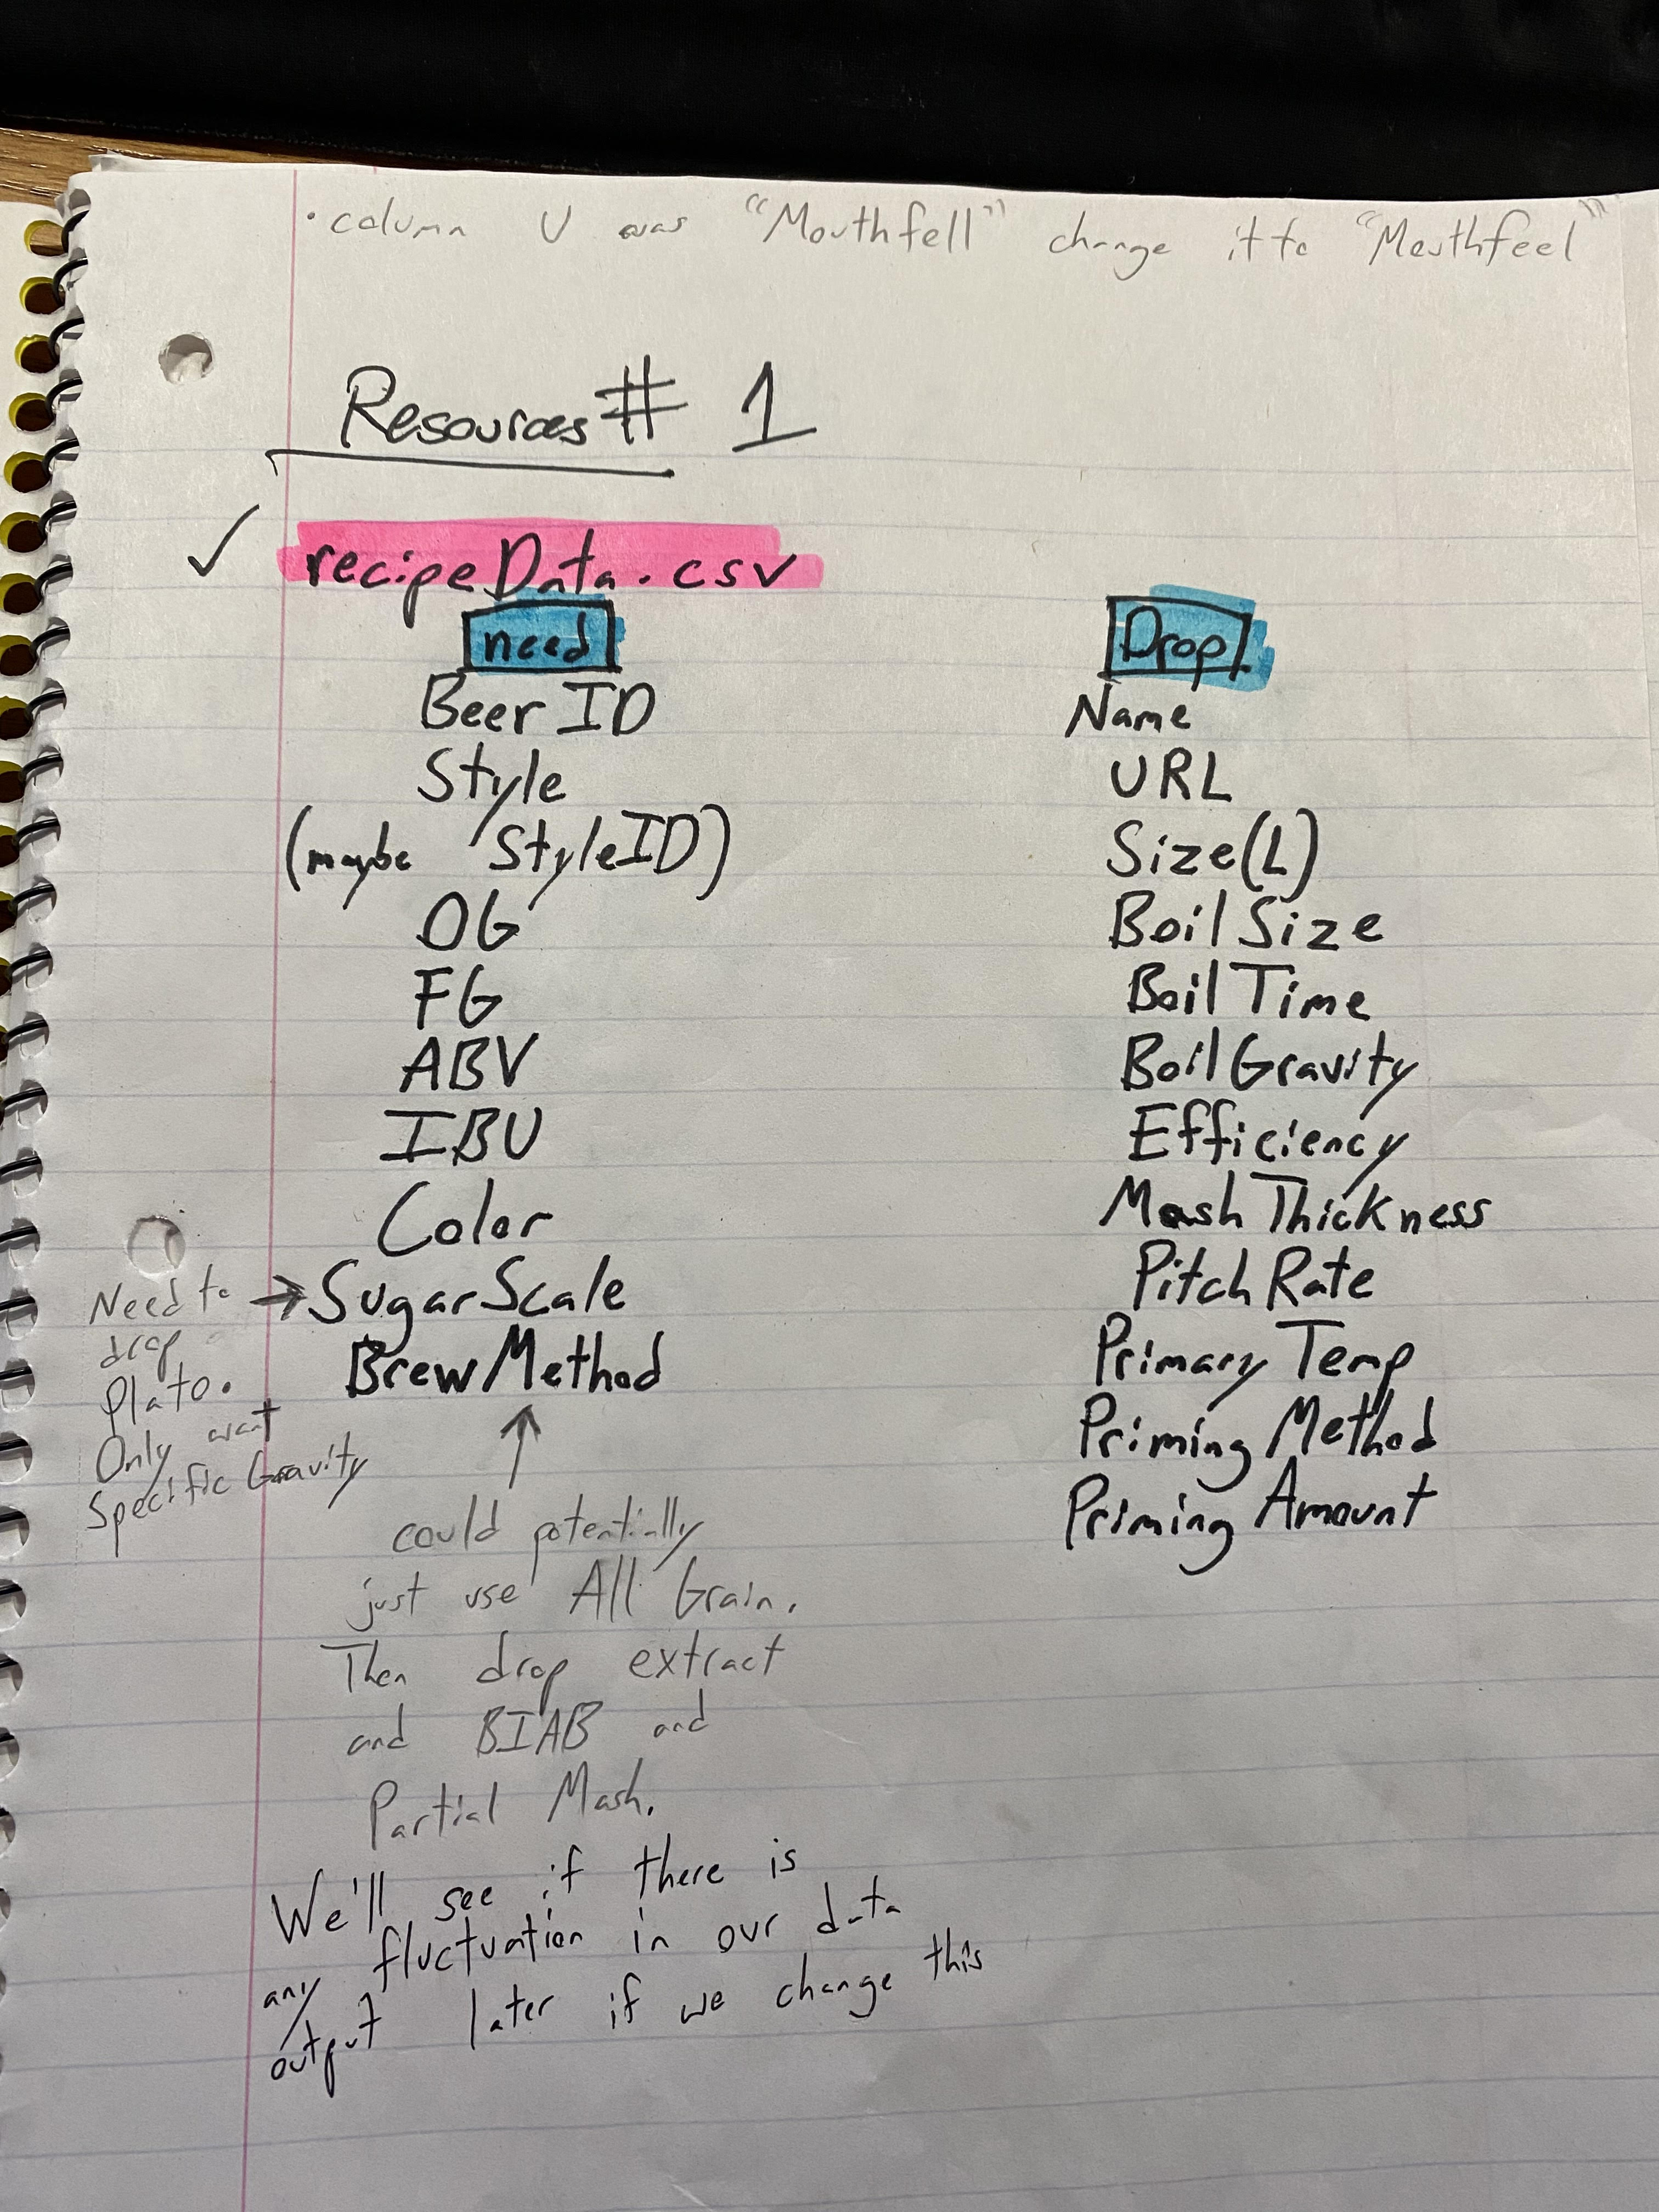 • column U was "Mouthfell" change it to "Mouthfeel"
Resources# 1
✓ recipeData.csv
need
Beer ID
Style
(maybe StyleID)
OG
FG
ABV
IBU
Color
→ SugarScale
BrewMethod
Need to
drop
Plato.
Only want
Specific Gravity
↑
could potentially
just use All Grain.
Then drop extract
and BIAB and
Partial Mash.
We'll see if there is
any fluctuation in our data
output later if we change this
Drop
Name
URL
Size(L)
Boil Size
Boil Time
Boil Gravity
Efficiency
Mash Thickness
Pitch Rate
Primary Temp
Priming Method
Priming Amount